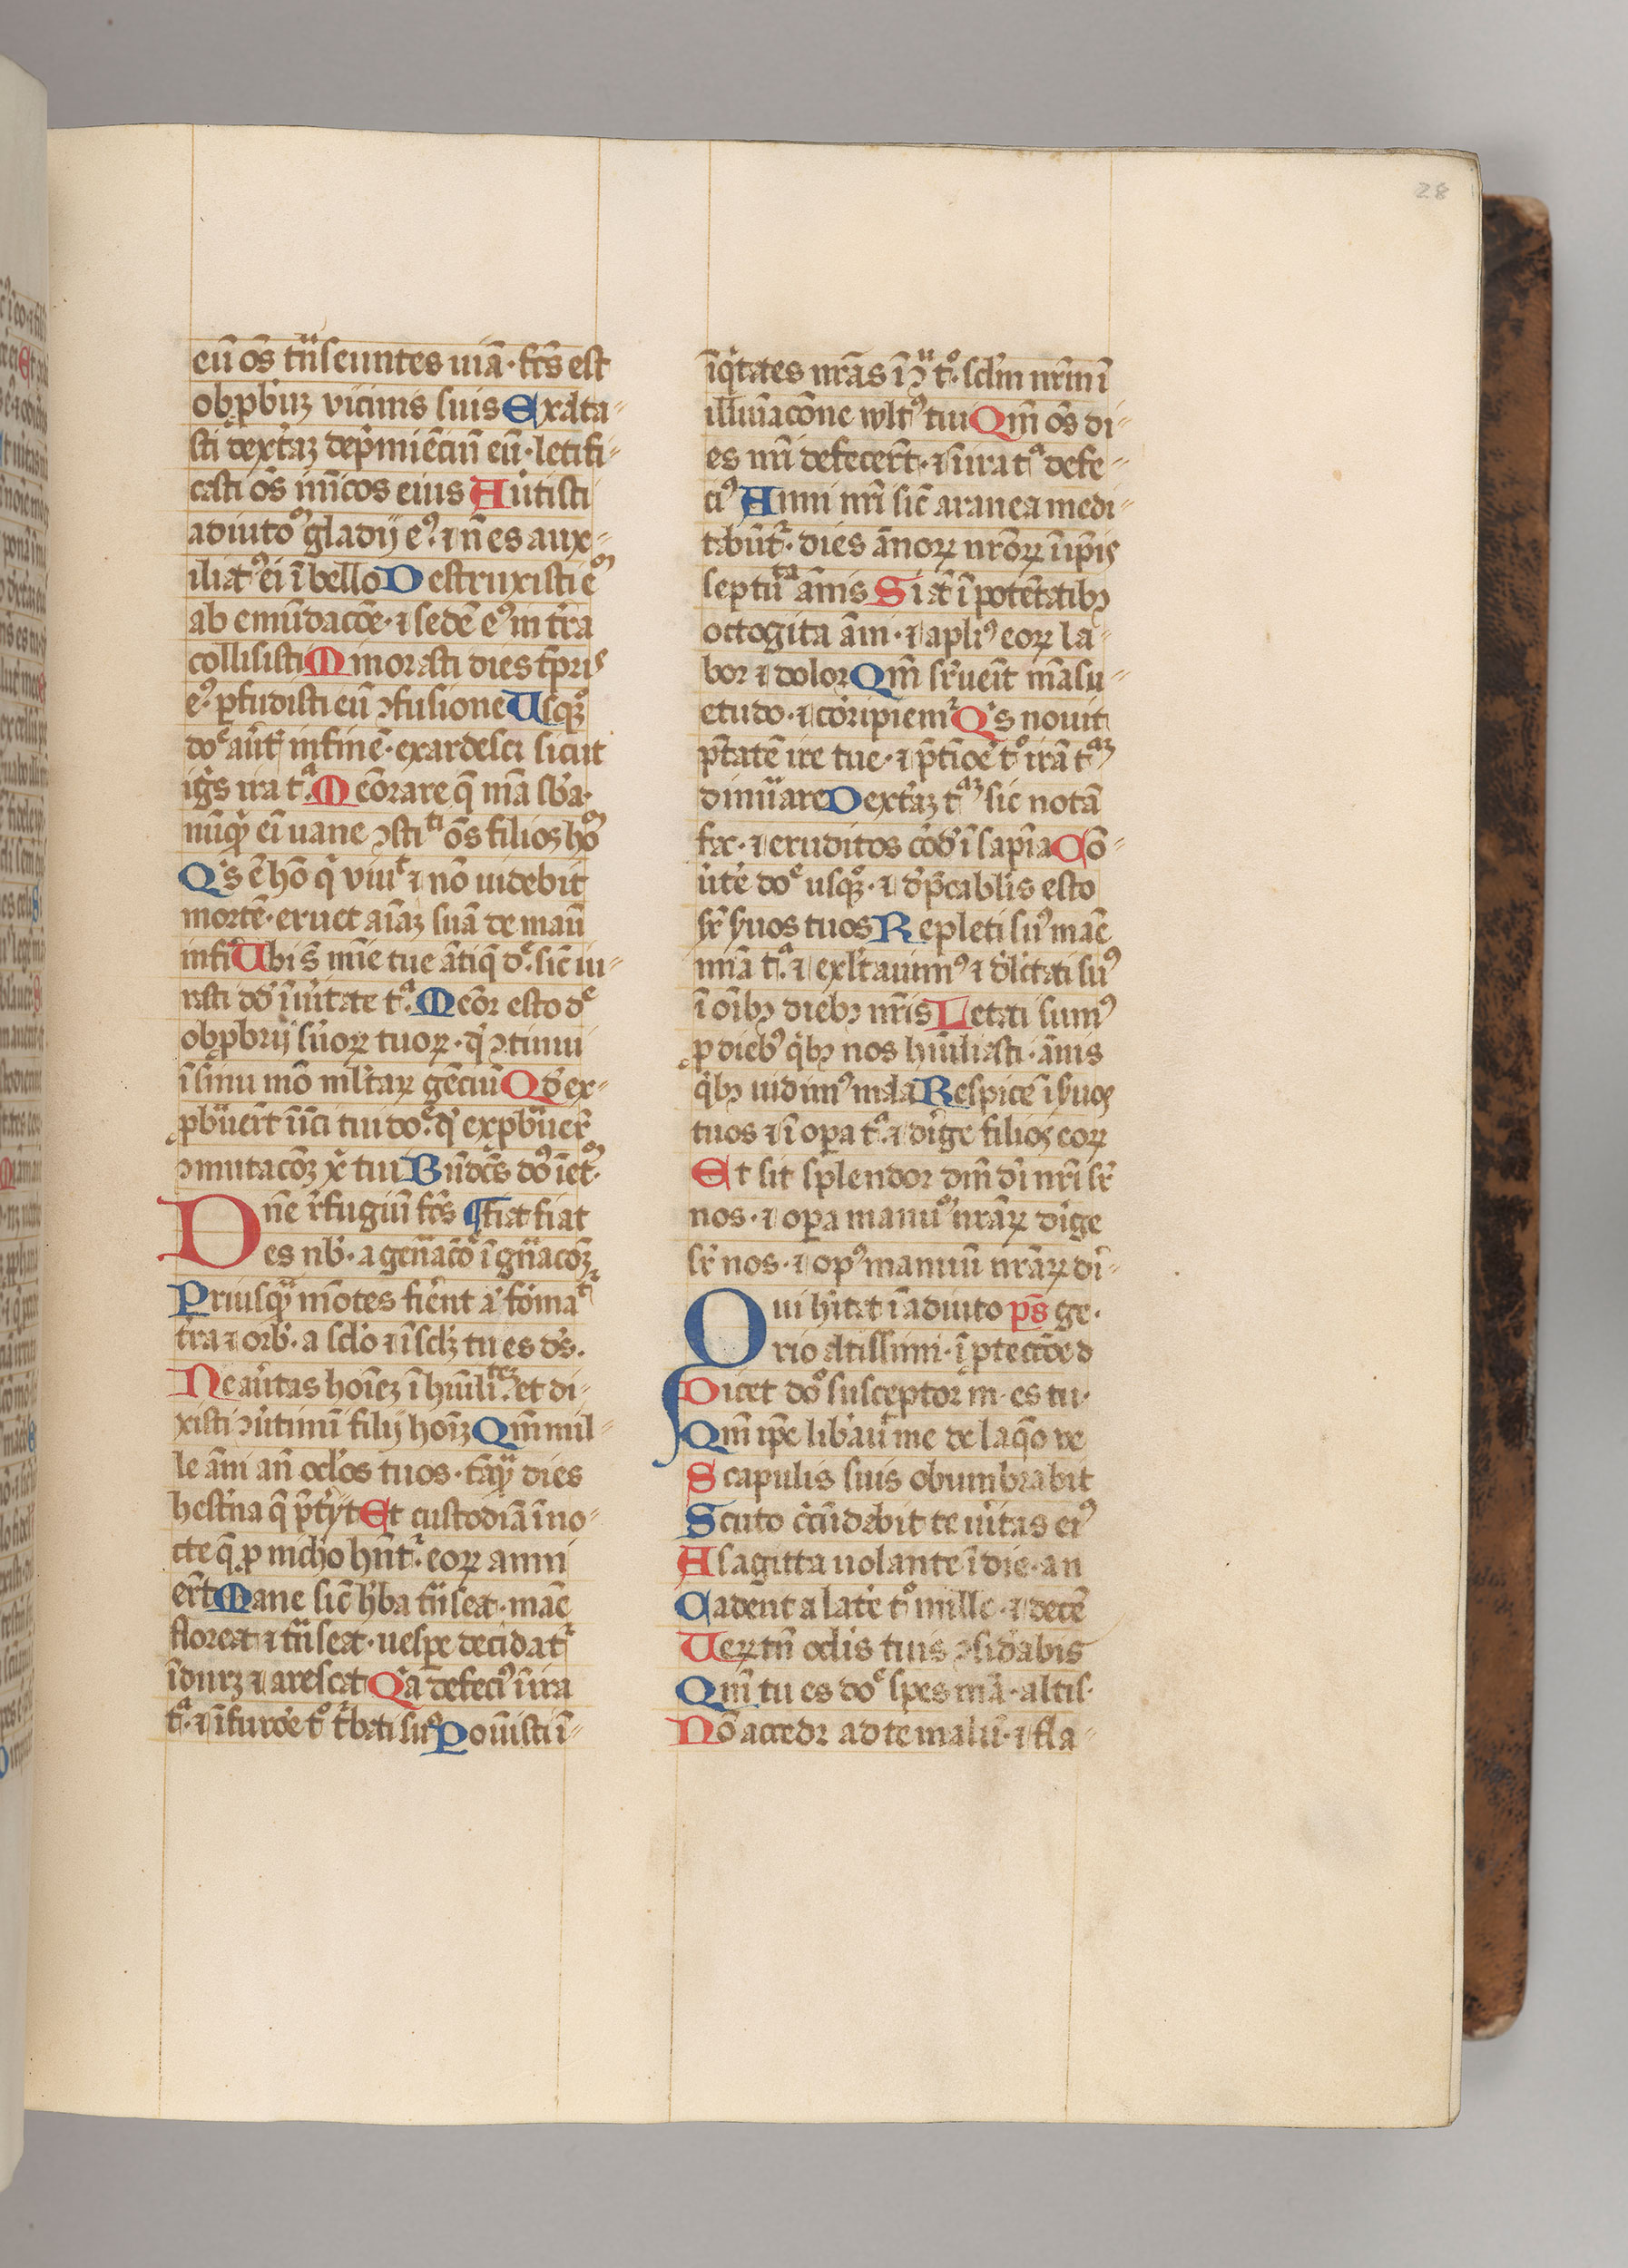 28
eū os̄ tn̈seuntes uiā · fc̄s est
obꝓbiūꝫ vicinis suis Exalta⸗
sti dext̄aꝫ dep̄miēciū eū · letifi⸗
casti os̄ īnīcos eius Au̇tisti
adiuto᷒ gladij eꝰ · ⁊ n̄ es aux⸗
iliatꝰ ei ī bello Destruxisti e
ab emūdacōe · ⁊ sedē eꝰ in tr̄a
collisisti Minorasti dies tp̄ris
eꝰ · ꝑfudisti eū ꝯfusione Usqꝫ
doͤ au̇t̄ in finē · exardesci sicut
igs̄ ira tͣ · Meōrare q̄ mā sba·
nūqͥ ei uane ꝯstitͥ os̄ filios ho
Qͥs ē hō qͥ viuͭ ⁊ nō uidebit
mortē · eruet aīaꝫ suā de manū
infi Ubi s̄ mīe tue ātiq̄ dͤ · sic̄ iu⸗
rasti dd̄ ī u̇itate tͣ · Meōr esto dͤ
obꝓbrij su̇oꝝ tuoꝝ · qd̄ ꝯtinui
ī sinu mō ml̄taꝝ gēciū Qd̄ ex⸗
ꝓbn̈eīt īīci tui doͤ · qd̄ exꝓbn̈er̄
ꝯmutacōꝫ xp̄i tui Bn̄dc̄s doꝰ ī et
Dn̄e r̄fugiū fc̄s ¶ fiat fiat
es nb̄ · a gen̈acōe ī gn̈acōꝫ
Priusqͣꝫ mōtes fier̄ent a᷒ fōma
tr̄a ⁊ orb᷒ · a sclo ⁊ ī sclꝫ tu es ds̄ ·
Ne au̇tas hoīeꝫ ī hūilitͣteꝫ · et di⸗
xisti ꝯu̇timī filij hoīꝫ Qm̄ mil⸗
le āni an̄ oclos tuos · tāqͣꝫ dies
hest̄na q̄ p̄t̄ijt Et custodiā ī no⸗
cte q̄ ꝓ nicho hn̄tͬ · eoꝝ anni
ert̄ Mane sic̄ hb̄a tn̈seat · māe
floreat ⁊ tn̈seat · uesꝑe decidatͬ
īdurꝫ ⁊ arescat Qͣa defecīꝰ ī ira
tͣ · ⁊ ī furoe᷒ tͦ t̄bati suꝰ Posuisti ī⸗
īqͥtates nr̄as ī ꝯn̈ tͦ · sclm nr̄m ī
illūiacōne vultꝰ tui Qm̄ os̄ di⸗
es nr̄i defecert̄ · ⁊ ī ira tͣ defe⸗
cīꝰ Anni nr̄i sic̄ aranea medi⸗
tabūtͬ · dies ānoꝝ nr̄oꝝ ī ip̄is
septūͣta ānis Si āt ī potētatibꝫ
octogīta ān̄i · ⁊ apliꝰ eoꝝ la⸗
bor ⁊ dolor Qm̄ sr̄ueīt māsu⸗
etudo · ⁊ corripiemͬ Qͥs nouit
p̄tatē ire tue · ⁊ p̄ tīoe᷒ tͦ irā tͣꝫ
dinūare Dext̄aꝫ tͣꝫ sic notā
fac · ⁊ eruditos cord̄ ī sapīa Cō⸗
u̇te dͦͤ usqͦꝫ · ⁊ dp̄cabl̄is esto
sr̄ s̄uos tuos Repleti suꝰ māe
mīā tͣ · ⁊ exlt̄auimꝰ ⁊ dlc̄tati suꝰ
ī oībꝫ diebꝫ nr̄is Letati sumꝰ
ꝓ diebꝰ qͥbꝫ nos hūiliasti · ānis
qͥbꝫ uidimꝰ mala Respice ī s̄uos
tuos ⁊ ī oꝑa tͣ · ⁊ dīge filios eoꝝ
Et sit splendor dn̄i dī nr̄i sr̄
nos · ⁊ oꝑa manuū nr̄aꝝ dīge
sr̄ nos · ⁊ opꝰ manuū nr̄aꝝ di⸗
Qui hītat ī adiuto ps̄ ge ·
rio altissimi · ī ꝓtectōe d
Dicet dͦo susceptor m · es tu ·
Qm̄ ip̄e libau᷒ me de laq̄o ve
Scapulis suis obumbrabit
Scuto cc̄ūdabit te u̇itas eiꝰ
A sagitta uolante ī die · an
Cadent a late᷒ tͦ mille · ⁊ decē
Ueꝝtn̄ oclis tuis ꝯsid̄abis
Qm̄ tu es dͦͤ spes mā · altis·
Nō accedꝫ ad te malū · ⁊ fla⸗